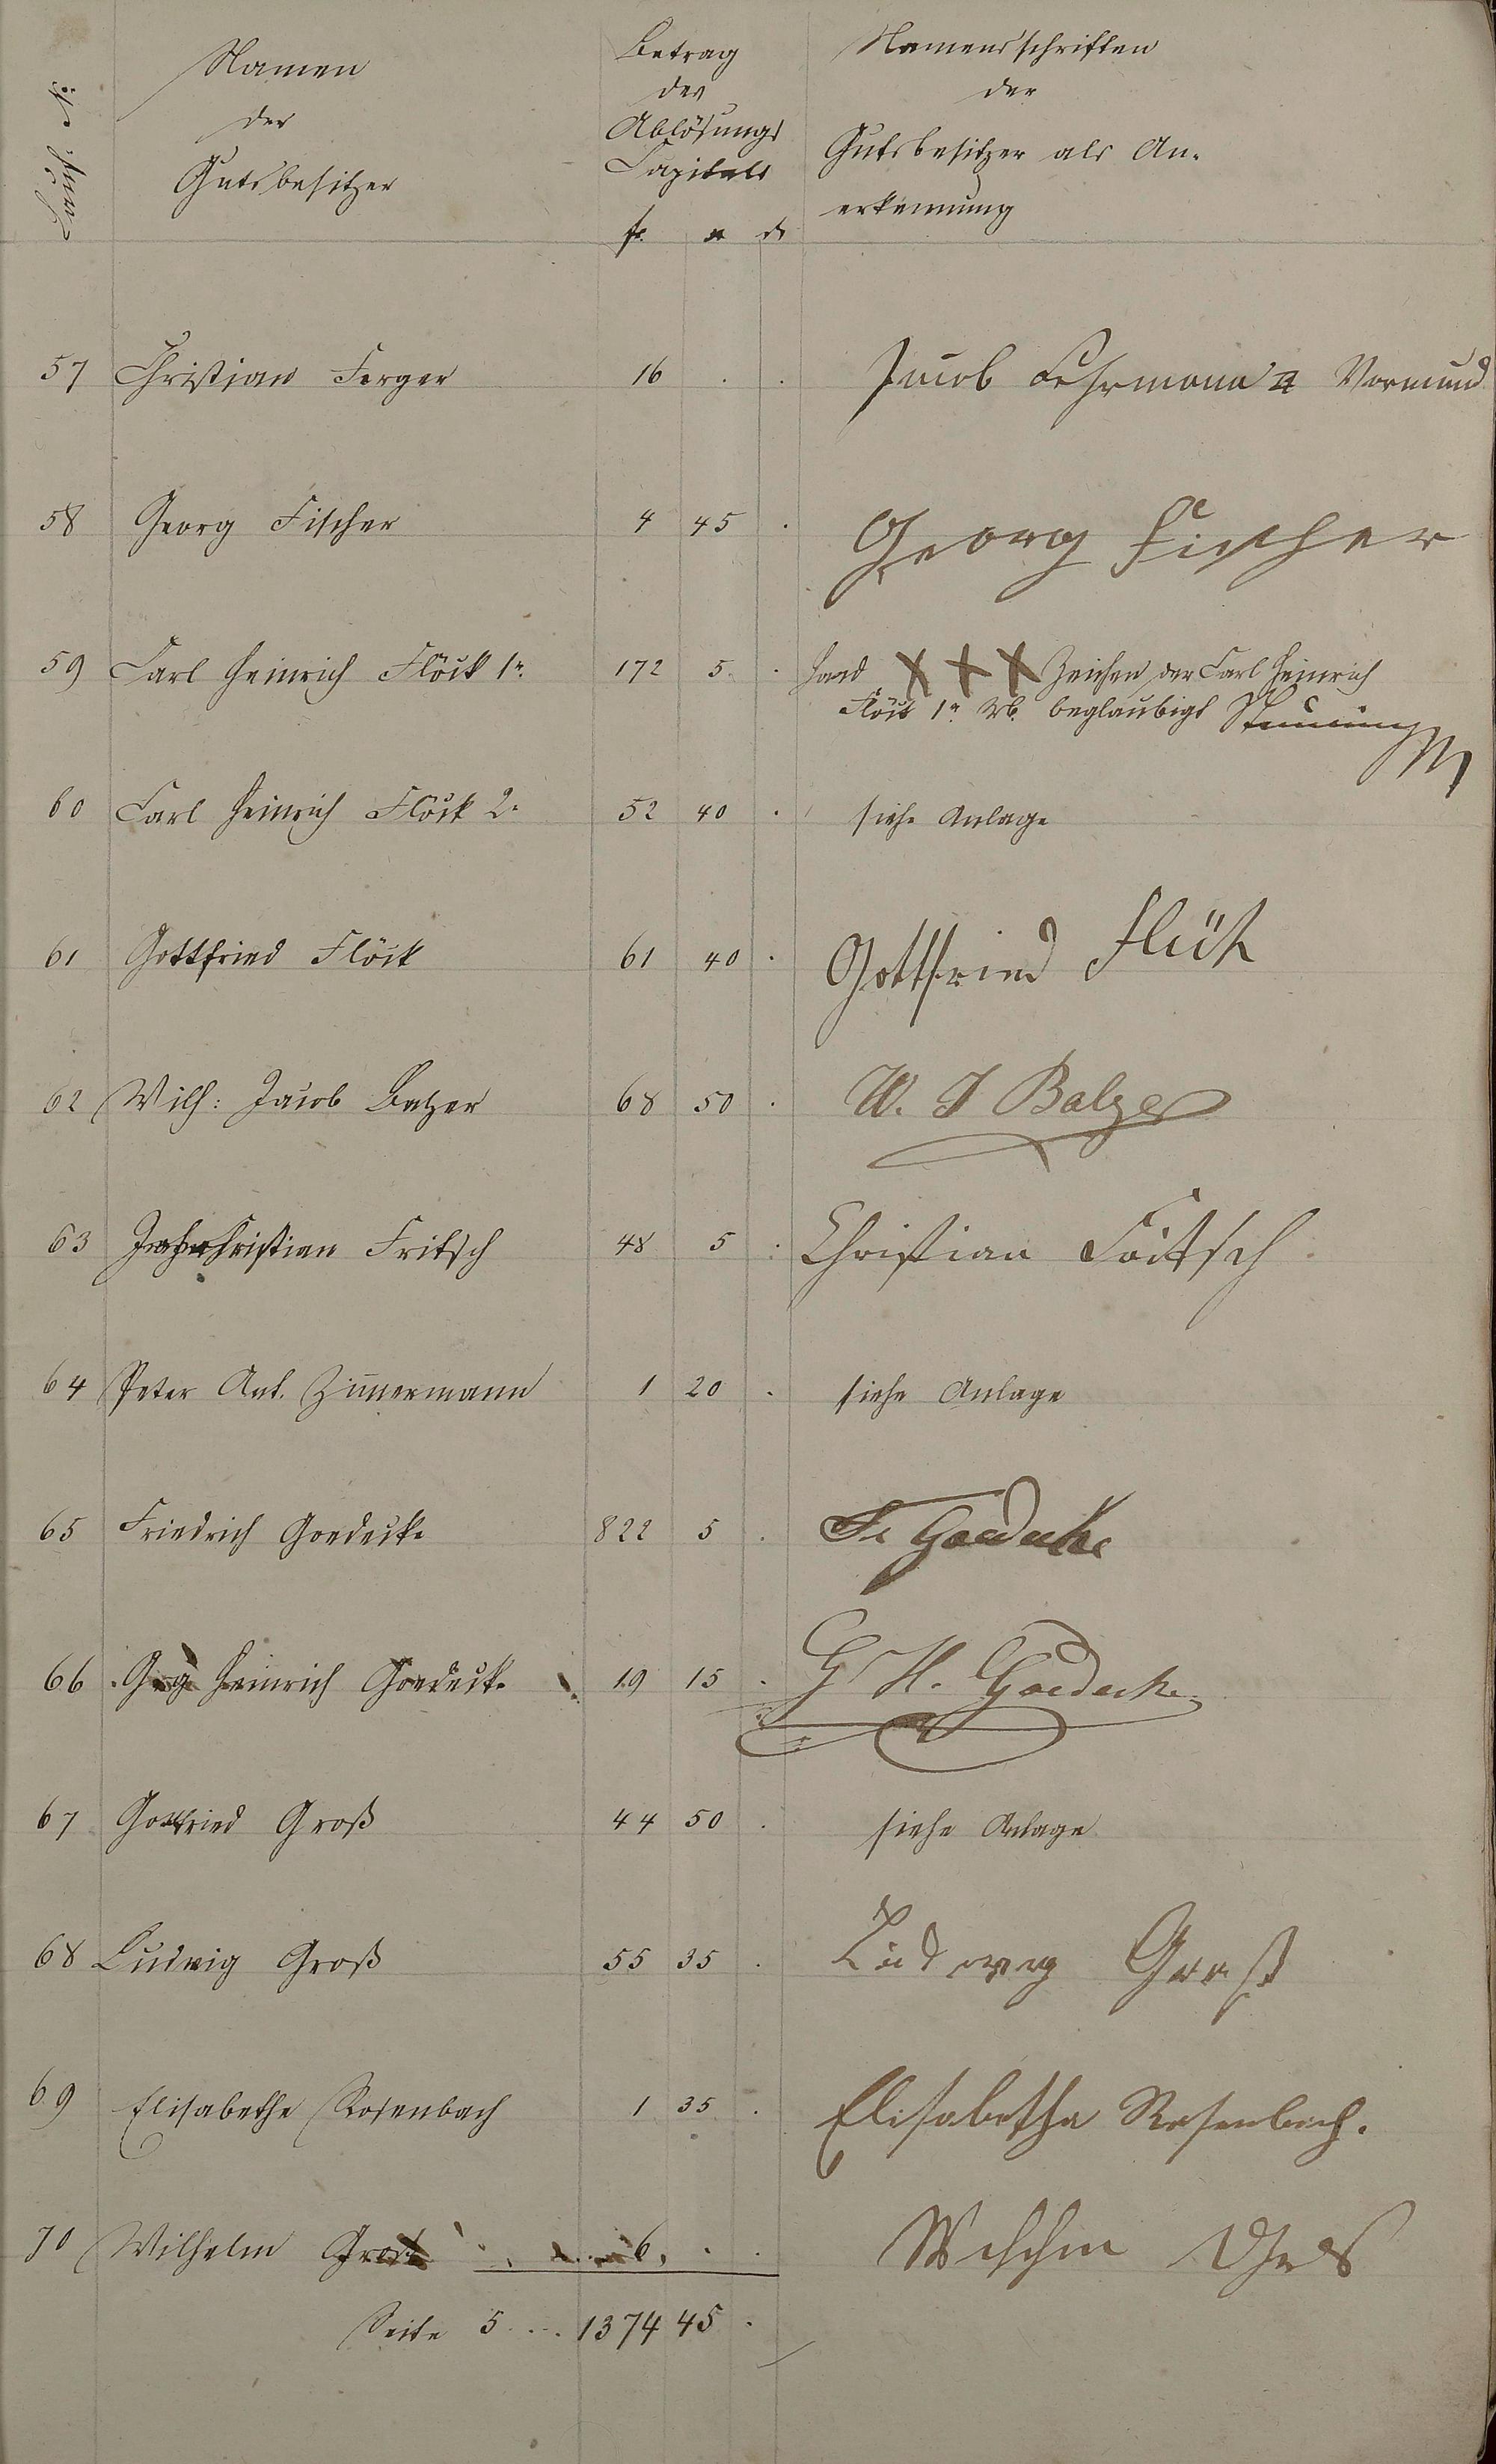 Lauf: №
Namen
der
Gutsbesitzer
Betrag
des
Ablösungs
Capitals
fr. x d
Namensschriften
der
Gutsbesitzer als An-
erkennung
57 Christian Ferger 16 . . Jacob Fuhrmann Vormund
58 Georg Fischer 4 45 . Georg Fischer
59 Carl Heinrich Flöck 1r. 172 5. . Hand XXX Zeichen des Carl Heinrich
Flöck 1r beglaubigt
60 Carl Heinrich Flöck 2r 52 40 . siehe Anlage
61 Gottfried Flöck 61 40 . Gottfried Flük
62 Wilh: Jacob Balzer 68 50 . W. J Balzer
63 Christian Fritsch 48 5 . Christian Fritsch
64 Peter Ant. Zimmermann 1 20 . siehe Anlage
65 Friedrich Goedecke 822 5 . Fr Goedecke
66 Heinrich Goedecke 19 15 . G H. Goedecke
67 Gottfried Groß 44 50 . siehe Anlage
68 Ludwig Groß 55 35 . Ludwig Groß
69 Elisabethe Rosenbach 1 35 . Elisabetha Rosenbach.
70 Wilhelm Groß 6. . .
Seite 5 ... 1374 45 .